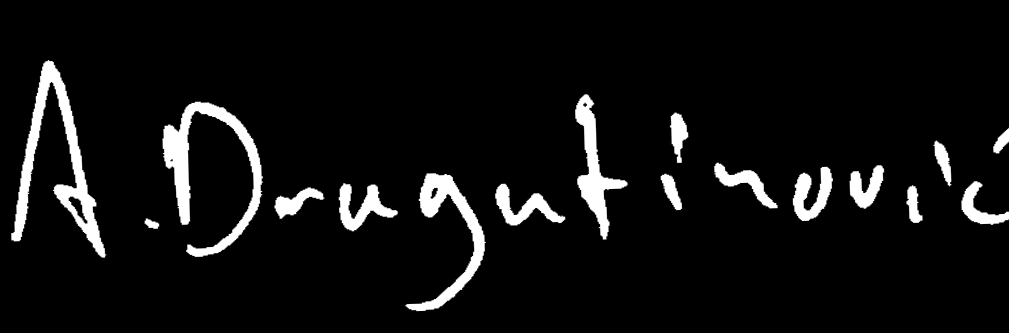 A. Dragutinović